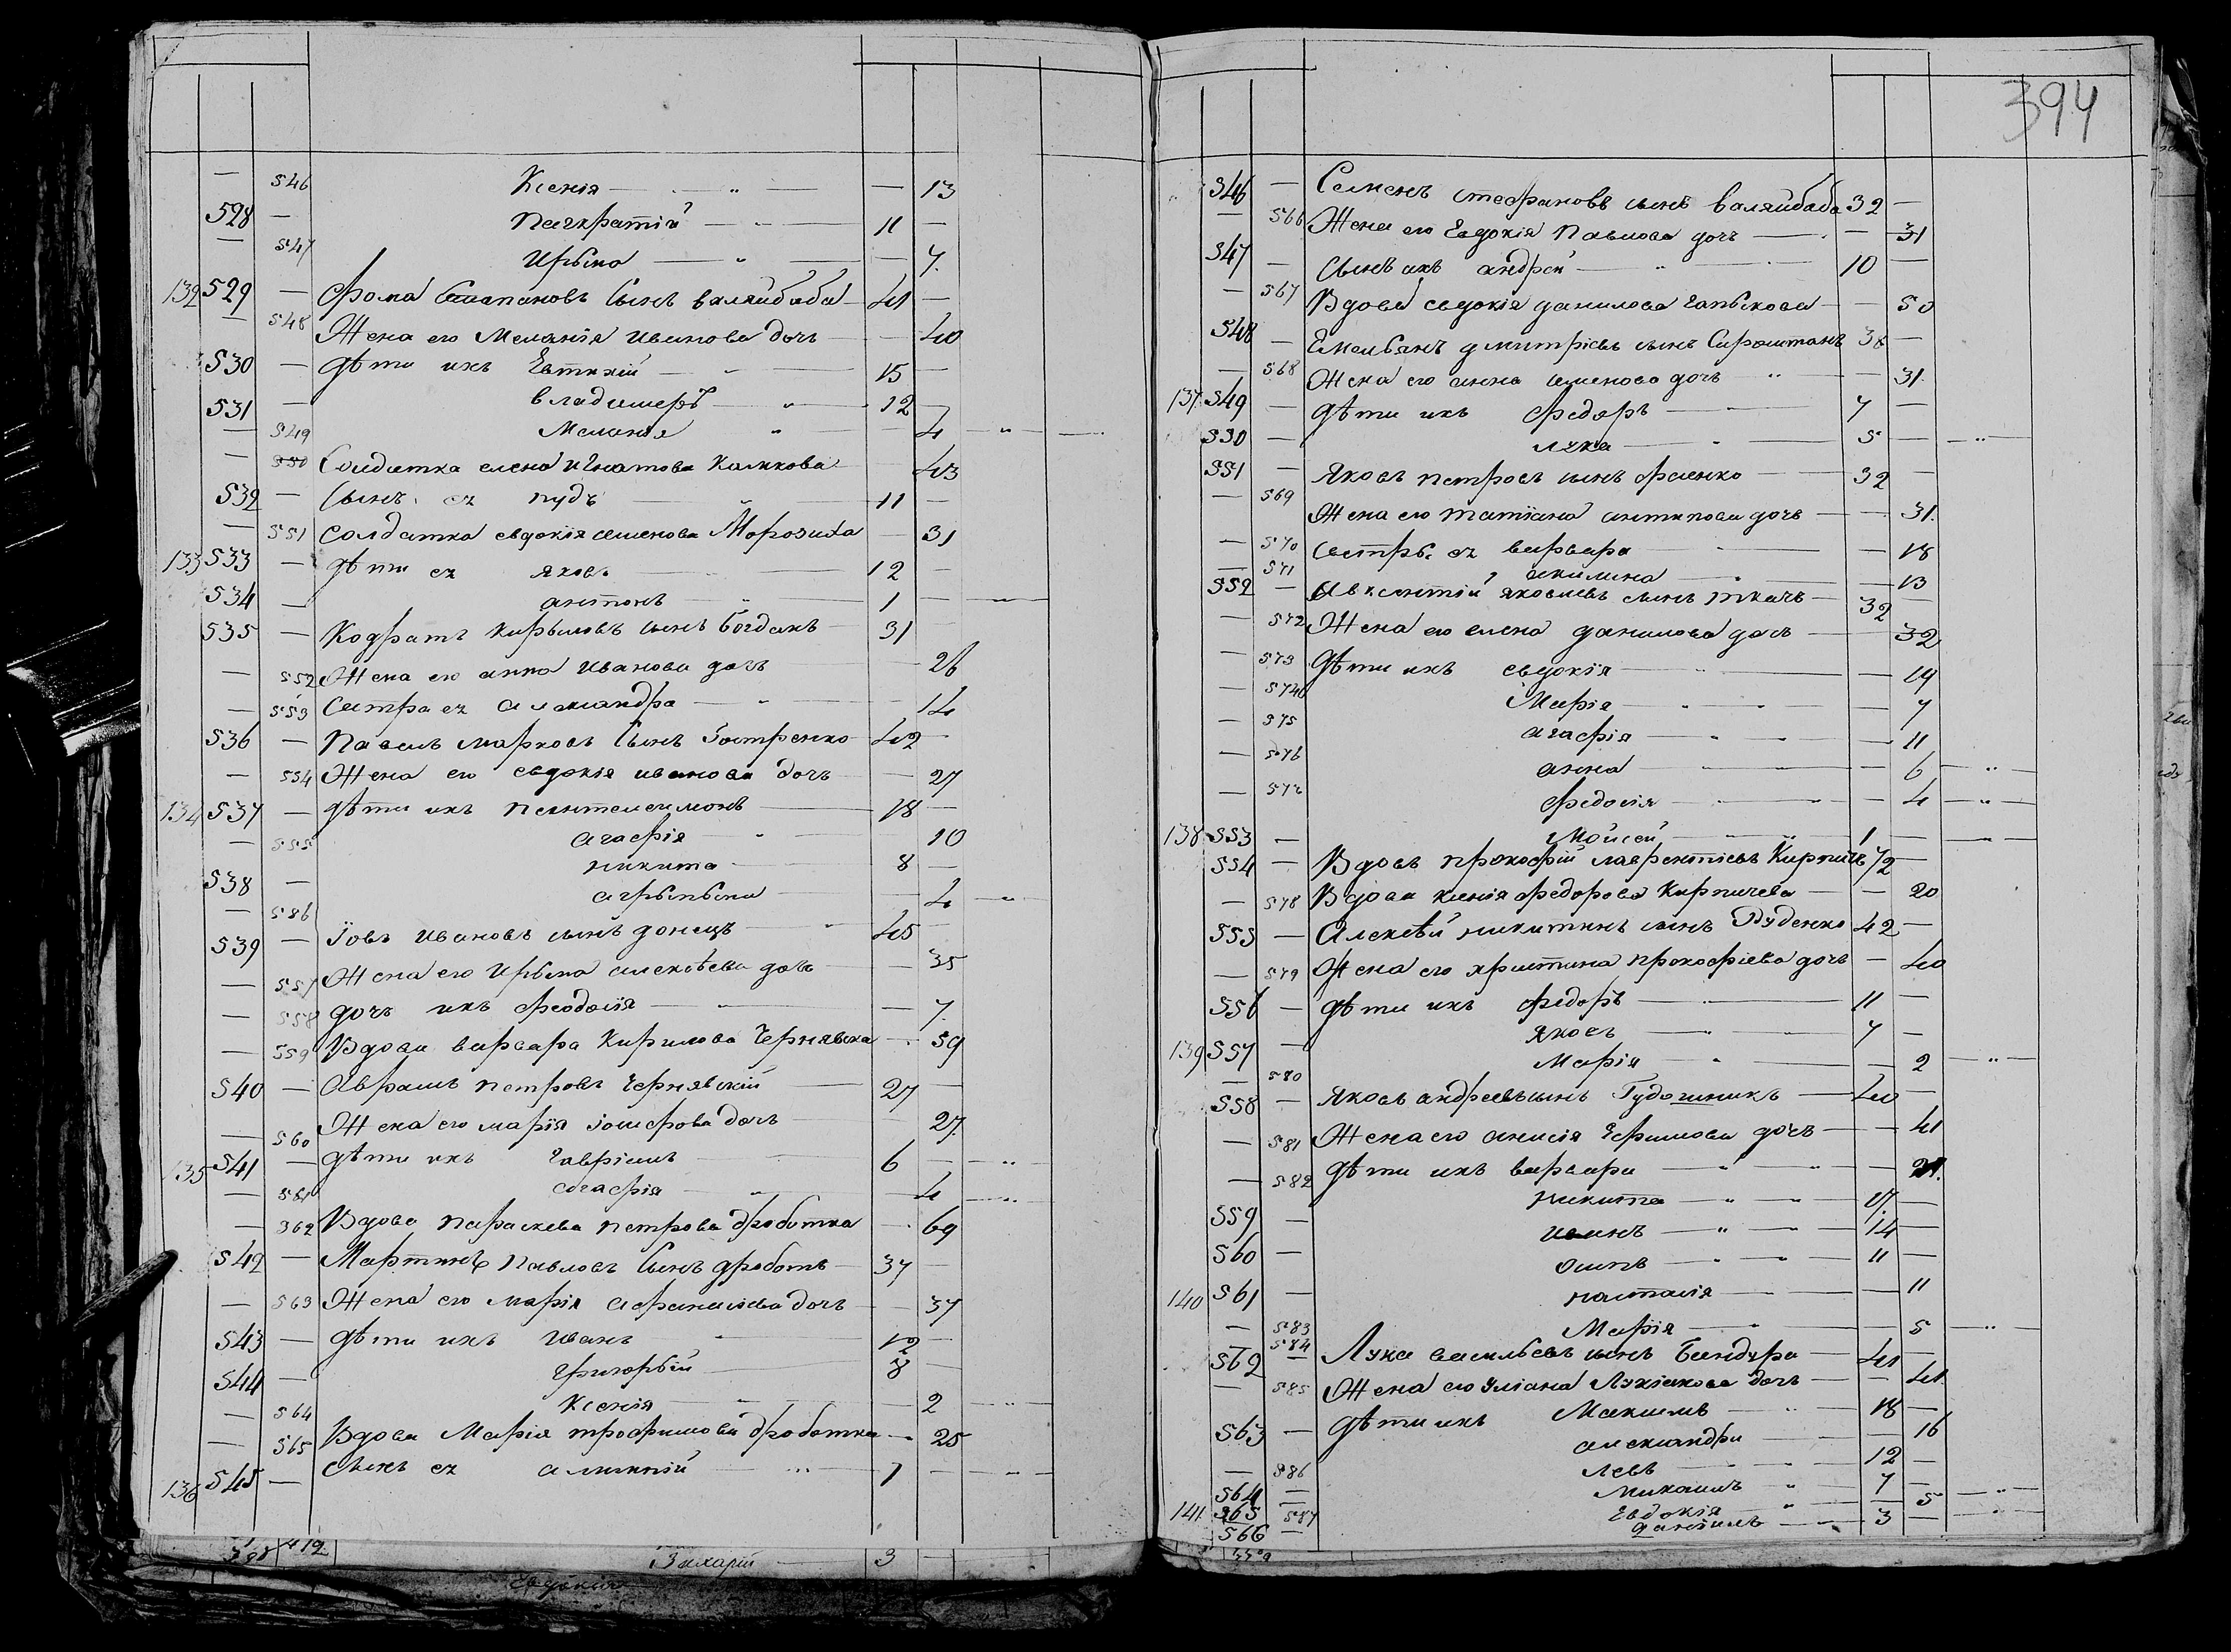 394
546 Ксенія 13
528 Панкратій 11
547 Ирина 7
132 529 Фома Степановъ Сынъ валяйбаба 41
548 Жена его Меланія иванова дочь 40
530 дѣти ихъ Евтихій 15
531 владимеръ 12
549 Меланія 4
550 Солдатка елена игнатова 43
532 Сынъ ея пудъ 11
551 Солдатка евдокія семенова Морозиха 31
133 533 дѣти ея яковъ 12
534 антонъ 1
535 Кодратъ кириловъ сынъ богданъ 31
552 Жена его анна иванова дочь 26
553 Сестра ея александра 14
536 Павелъ марковъ Сынъ 42
554 Жена его евдокія иванова дочь 27
134 537 дѣти ихъ пантелеимонъ 18
555 агафія 10
538 никита 8
586 агрыпына 4
539 Іовъ ивановъ сынъ донецъ 45
557 Жена его Ирына алексѣева дочь 35
558 дочь ихъ феодосія 7
559 Вдова варвара Кирилова Чернявска 59
540 Аврамъ петровъ Чернявскій 27
560 Жена его марія іосифова дочь 27
135 541 дѣти ихъ гавріилъ 6
561 агафія 4
562 Вдова параскева петрова дроботка 69
542 Мартинъ павловъ Сынъ дроботъ 37
563 Жена его марія афанасіева дочь 37
543 дѣти ихъ иванъ 12
544 григорый 8
564 Ксенія 2
565 Вдова Марія трофимова дроботка 25
136 545 Сынъ ея 1
412 Захарій 3
Евдокія
546 Семенъ стефановъ сынъ валяйбаба 32
566 Жена его Евдокія Павлова дочь 31
547 Сынъ ихъ андрей 10
567 Вдова евдокія данилова 50
548 Емельянъ дмитріевъ сынъ 38
568 Жена его анна семенова дочь 31
137 549 дѣти ихъ федоръ 7
550 лука 5
551 Яковъ петровъ сынъ фесенко 32
569 Жена его татіана антипова дочь 31
570 Сестры ея варвара 18
571 акилина 13
552 Авксентій яковлевъ сынъ ткачъ 32
572 Жена его елена данилова дочь 32
573 дѣти ихъ евдокія 19
574 Марія 7
575 агафія 11
576 анна 6
577 федосія 4
138 553 Мойсей 1
554 Вдовъ прокофій лаврентіевъ Кирпичъ 72
578 Вдова ксенія федорова Кирпичева 20
555 Алексѣй никитинъ сынъ Руденко 42
579 Жена его христина прокофіева дочь 40
556 дѣти ихъ федоръ 11
139 557 яковъ 7
580 Марія 2
558 Яковъ андреевъ сынъ Гудошникъ 40
581 Жена его анисія Ефимова дочь 41
582 дѣти ихъ варвара 21
559 никита 17
560 иванъ 14
140 561 осипъ 11
583 наталія 11
584 Марія 5
562 Лука васильевъ сынъ Бандура 41
585 Жена его уліана Лукіянова дочь 41
563 дѣти ихъ Максимъ 18
586 александра 16
564 левъ 12
141 565 Михаилъ 7
587 Евдокія 5
566 даніилъ 3